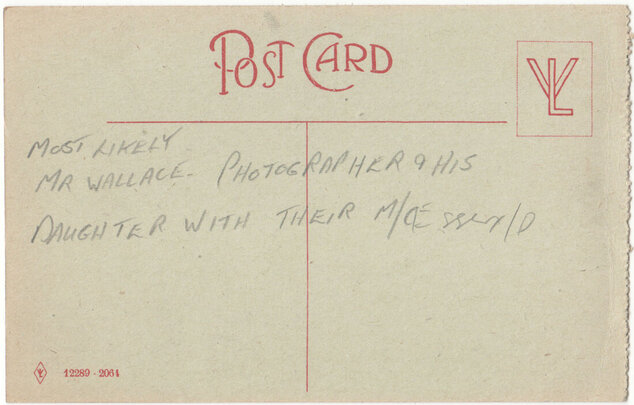 POST CARD
VL
MOST LIKELY
MR WALLACE. PHOTOGRAPHER & HIS
DAUGHTER WITH THEIR
12289 - 2064